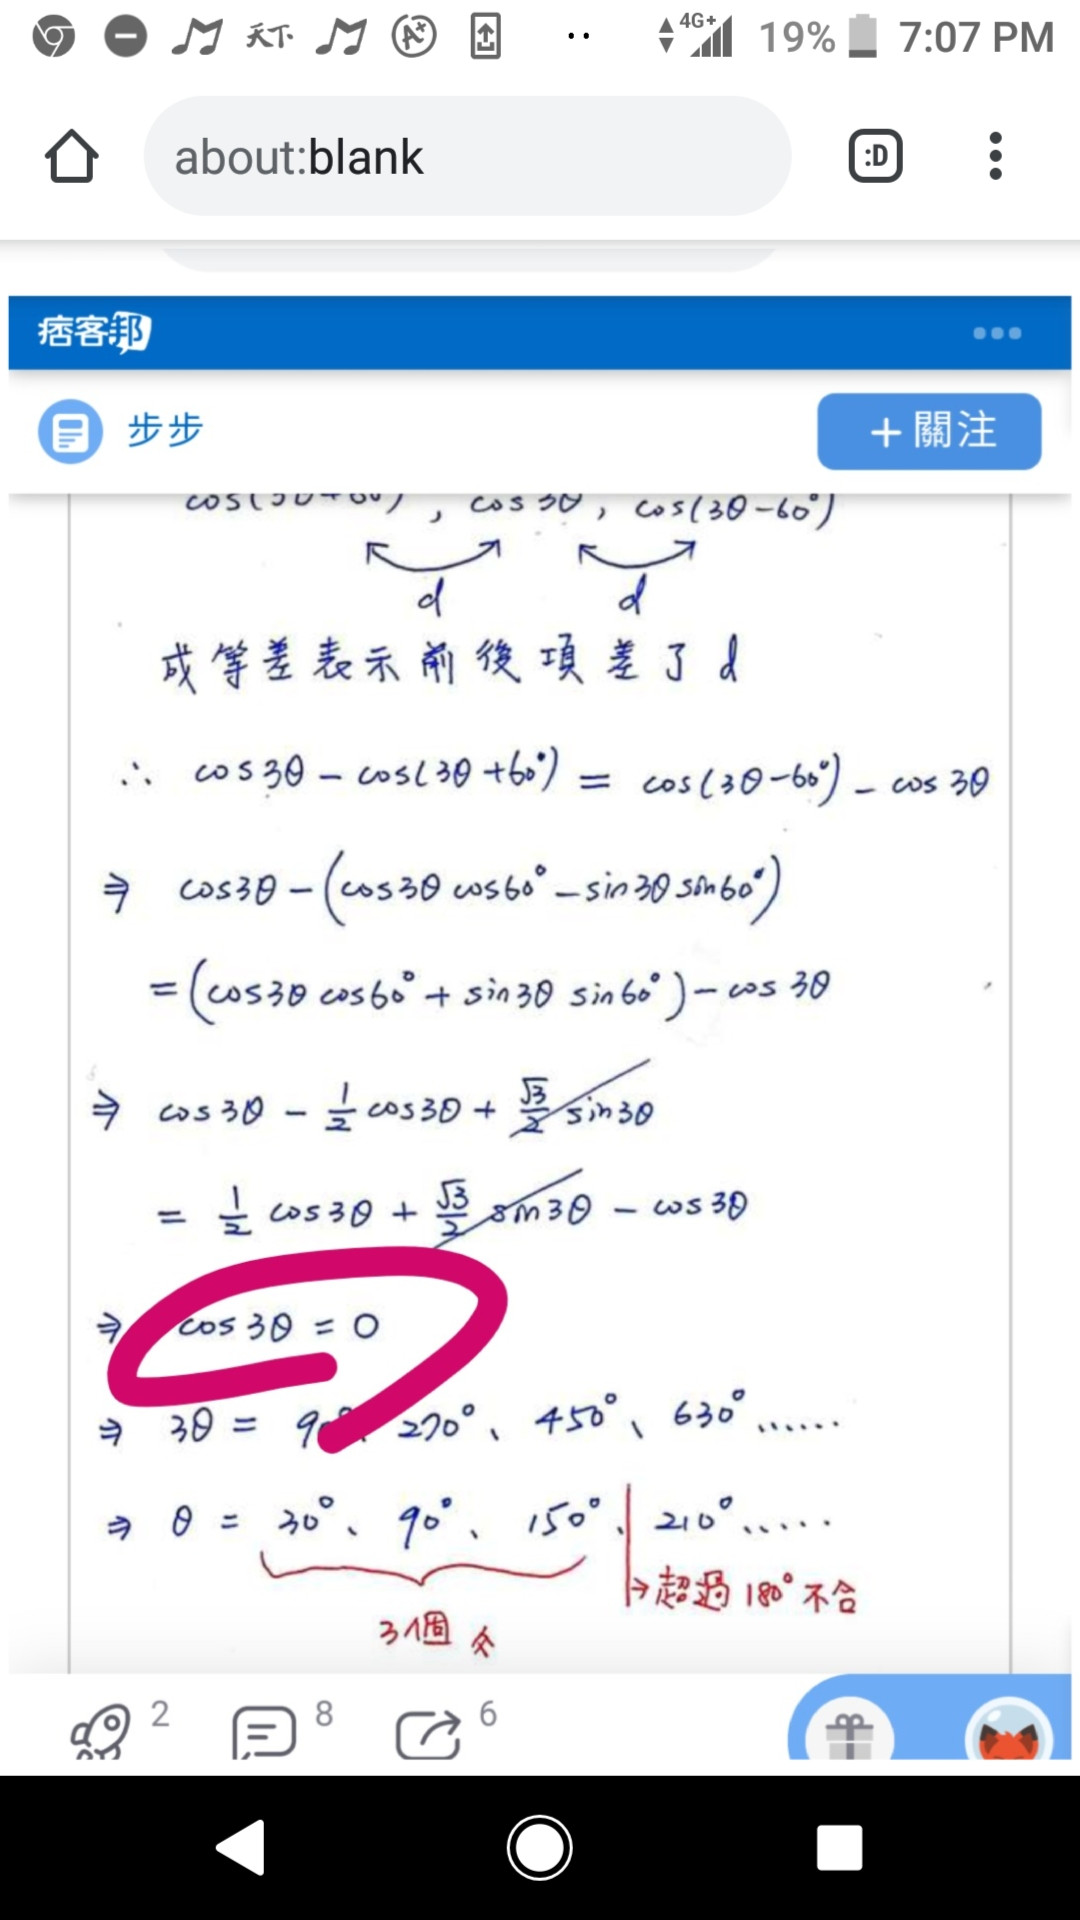 天下 4G+ 19% 7:07 PM
about:blank :D
痞客邦
步步 +關注
cos(3θ+60°), cos3θ, cos(3θ-60°)
d d
成等差表示前後項差了d
∴ cos3θ - cos(3θ+60°) = cos(3θ-60°) - cos3θ
⇒ cos3θ - (cos3θ cos60° - sin3θ sin60°)
= (cos3θ cos60° + sin3θ sin60°) - cos3θ
⇒ cos3θ - 1/2 cos3θ + √3/2 sin3θ
= 1/2 cos3θ + √3/2 sin3θ - cos3θ
⇒ cos3θ = 0
⇒ 3θ = 90°、270°、450°、630°......
⇒ θ = 30°、90°、150°、210°.....
→超過180°不合
3個
2 8 6